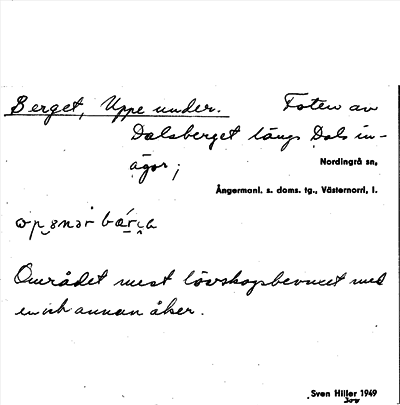 Berget, Uppe under. Foten av
Dalsberget längs Dals in-
ägor;
Nordingrå sn,
Ångermanl. s. doms. tg., Västernorrl. l.
Området mest lövskogsbevuxet med
en och annan åker.
Sven Hiller 1949